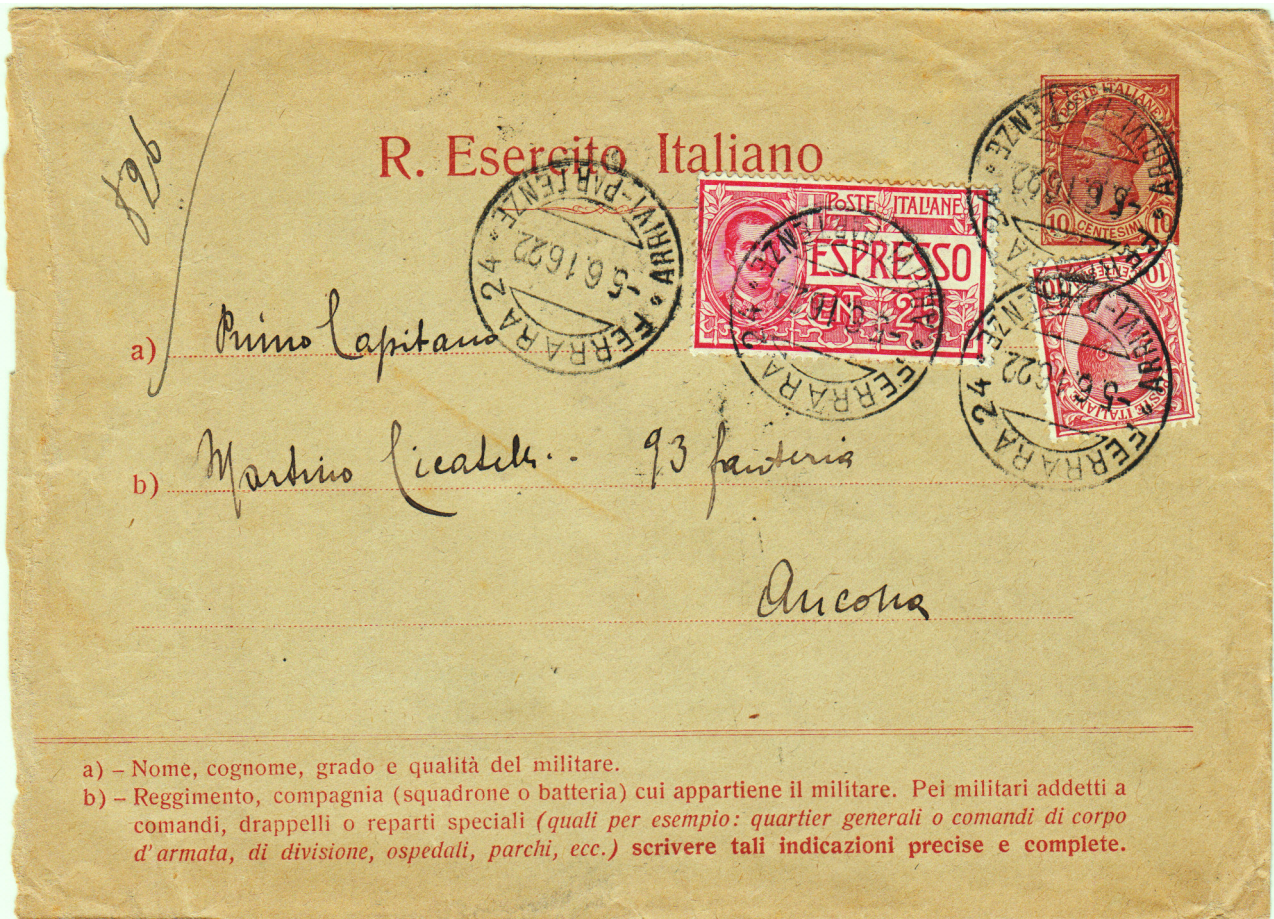 826
R. Esercito Italiano
POSTE ITALIANE
10 CENTESIMI 10
POSTE ITALIANE
ESPRESSO
CEN. 25
10 CENT 10
POSTE ITALIANE
FERRARA 24 * ARRIVI-PARTENZE *
-5.6.16 22
FERRARA 24 * ARRIVI-PARTENZE *
FERRARA 24 * ARRIVI-PARTENZE *
-5.6.16 22
FERRARA 24 * ARRIVI-PARTENZE *
-5.6.16 22
a) Primo Capitano
b) Martino 93 fanteria
Ancona
a) – Nome, cognome, grado e qualità del militare.
b) – Reggimento, compagnia (squadrone o batteria) cui appartiene il militare. Pei militari addetti a
comandi, drappelli o reparti speciali (quali per esempio: quartier generali o comandi di corpo
d'armata, di divisione, ospedali, parchi, ecc.) scrivere tali indicazioni precise e complete.